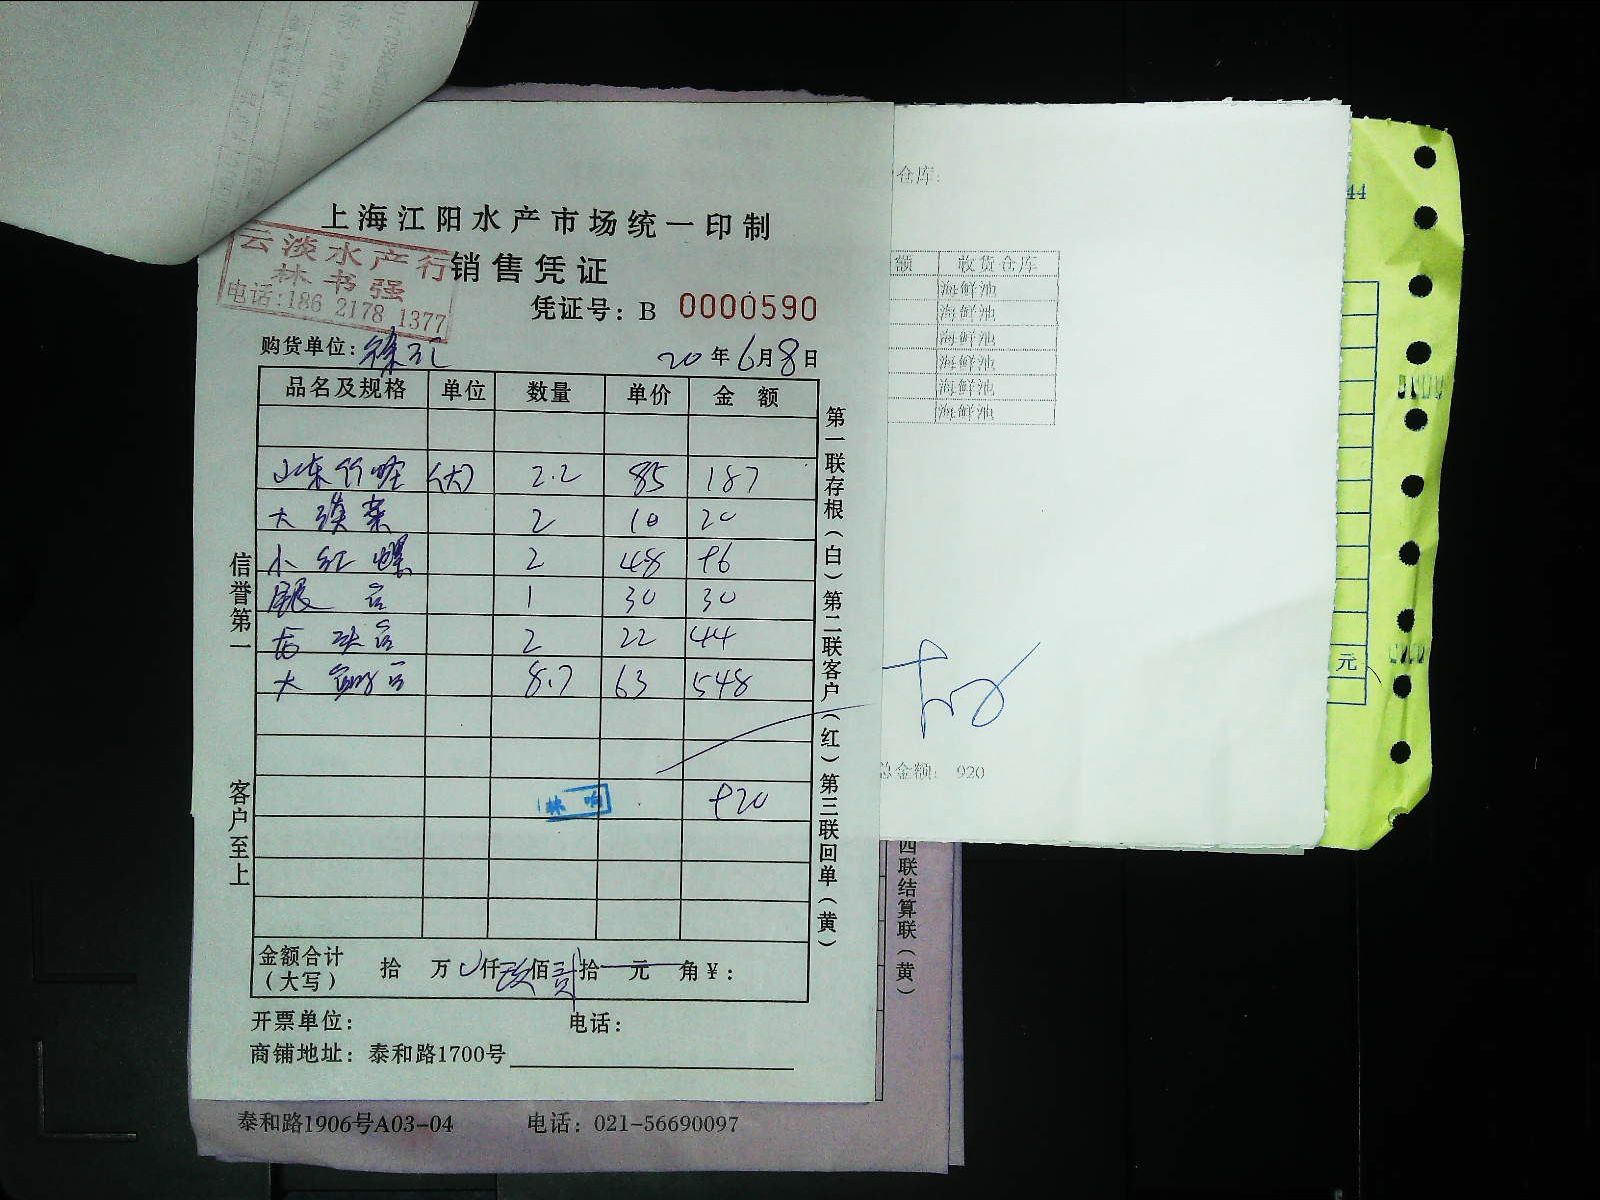 上海江阳水产市场统一印制
云淡水产行
林书强
电话:186 2178 1377
销售凭证
凭证号: B 0000590
购货单位: 徐汇 20年6月8日
品名及规格 单位 数量 单价 金额
山东竹蛏 (大) 2.2 85 187
大 2 10 20
小红螺 2 48 96
1 30 30
2 22 44
大 8.7 63 548
920
金额合计(大写) 拾 万 仟 玖佰贰拾 元 角 ¥:
开票单位: 电话:
商铺地址: 泰和路1700号
信誉第一
客户至上
第一联存根(白)第二联客户(红)第三联回单(黄)
仓库:
额 收货仓库
海鲜池
海鲜池
海鲜池
海鲜池
海鲜池
海鲜池
总金额: 920
44
元
四联结算联(黄)
泰和路1906号A03-04 电话: 021-56690097